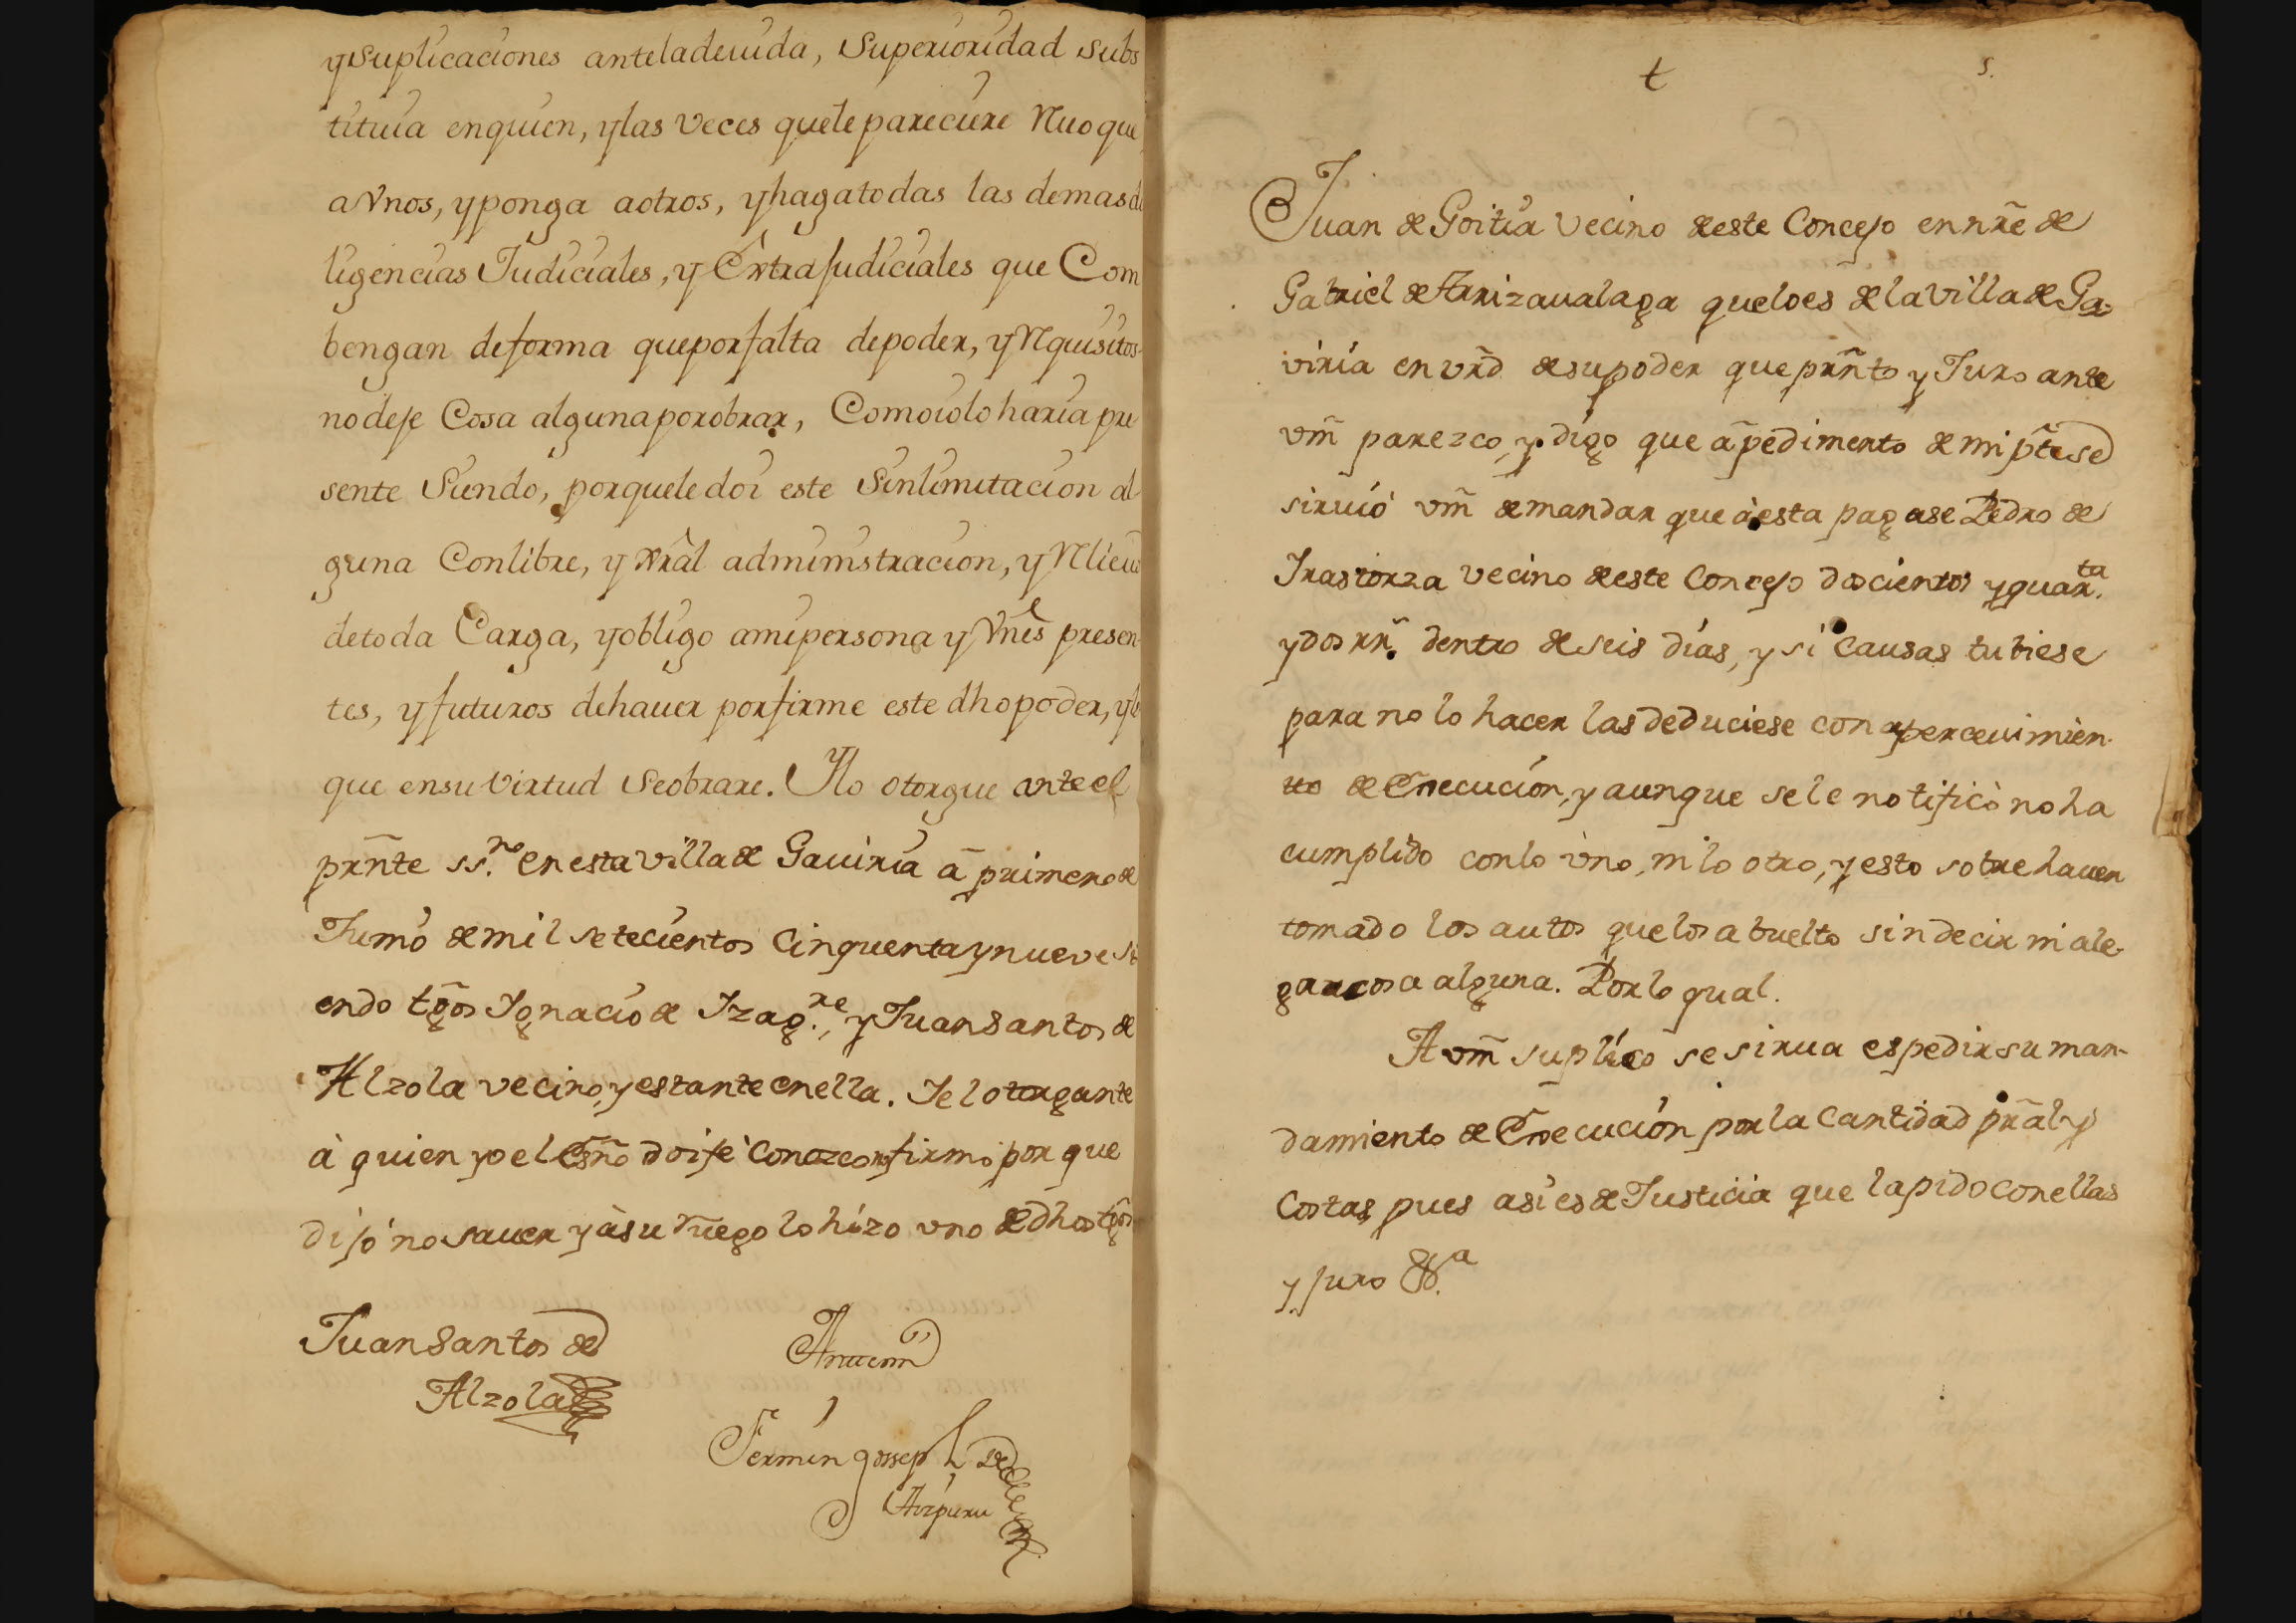 y suplicaciones ante la deuida, Superioridad subs
tituia en quien, y las veces que le pareciere Reuoque
a Vnos, y ponga a otros, y haga todas las demas di
ligencias Judiciales, y Extrajudiciales que Com
bengan de forma que por falta de poder, y Requisitos
no deje Cosa alguna por obrar, Como io lo haria pre
sente Siendo, por que le doi este Sin limitacion al
guna Con libre, y Xrâl administracion, y Relieuo
de toda Carga, y obligo a mi persona y Vnes presen
tes, y futuros de hauer por firme este dho poder, y lo
que en su Virtud Se obrare. Y lo otorgue ante el
prñte ss.no en esta villa de Gauiria a primero de
Junio de mil setecientos Cinquenta y nueve si
endo tgõs Ignacio de Izag.re, y Juan Santos de
Alzola vecino, y estante en ella. Ie lo torgante
à quien yo el Essño doi fè Conozco no firmo por que
dijò no sauer y à su ruego lo hizo vno de dhos tgõs
Juan Santos de
Alzola
Antemi
Fermin Joseph de
Aizpuru
t 5.
Juan de Goitia Vecino de este Concejo en nrẽ de
Gabriel de Arrizaualaga que lo es de la Villa de Ga-
viria en vrd̃ de su poder que prñto y Juro ante
vm̃ parezco, y digo que a pedimento de mi pt̃e se
siruió vm̃ de mandar que à esta pagase Pedro de
Irastorza vecino de este Concejo doscientos y quar.ta
y dos rr.̃ dentro de seis días, y si causas tubiese
para no lo hacer las deduciese con apercevimien-
to de Execución, y aunque se le notificò no ha
cumplido con lo vno, ni lo otro, y esto sobre hauer
tomado los autos que los a buelto sin decir ni ale-
gar cosa alguna. Por lo qual.
A vm̃ suplico se sirua espedir su man-
damiento de Execución por la Cantidad prãl y
Costas pues asi es de Justicia que la pido con ellas
y juro &.a